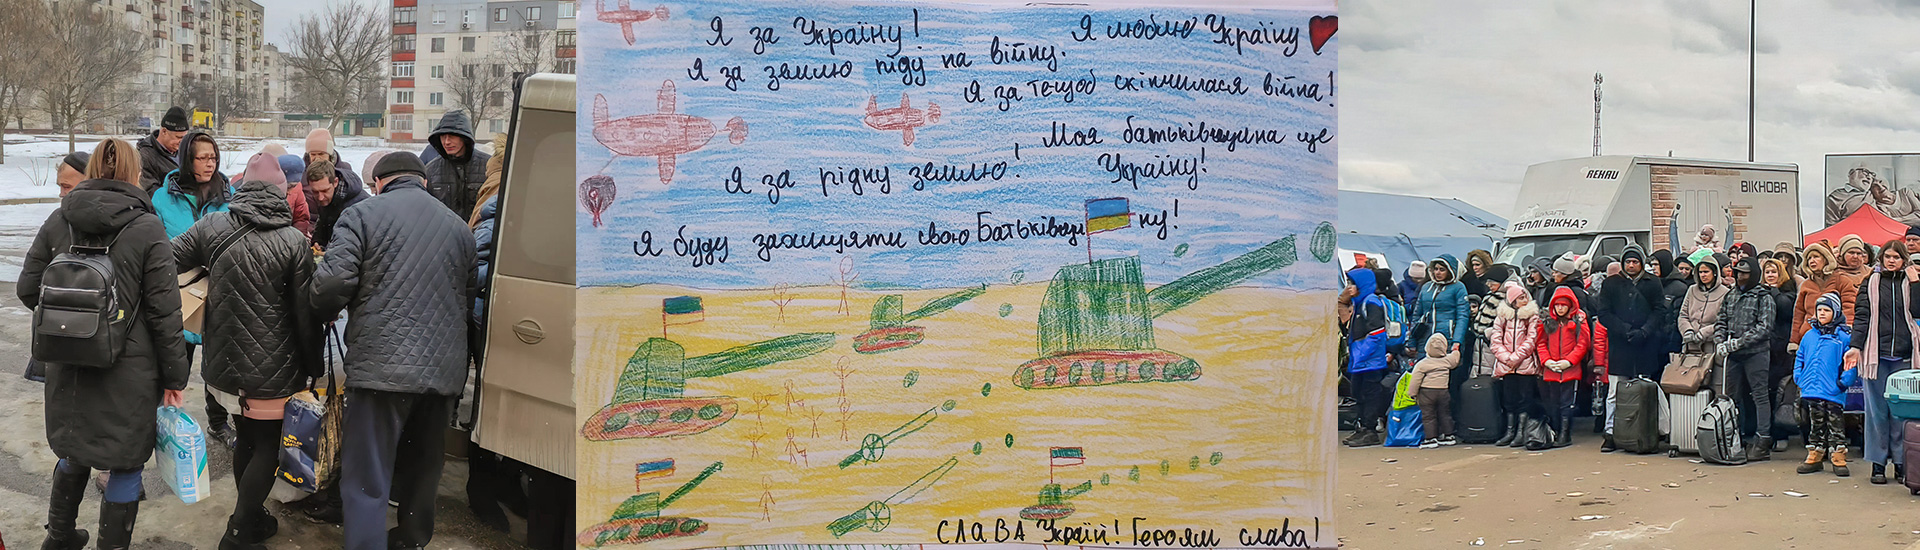 Я за Україну!
Я люблю Україну
Я за землю піду на війну.
Я за те щоб скінчилася війна!
Моя батьківщина це
Україну!
Я за рідну землю!
Я буду захищяти свою Батьківщину!
СЛАВА Україні! Героям слава!
REHAU
ВІКНОВА
ШУКАЄТЕ
ТЕПЛІ ВІКНА?